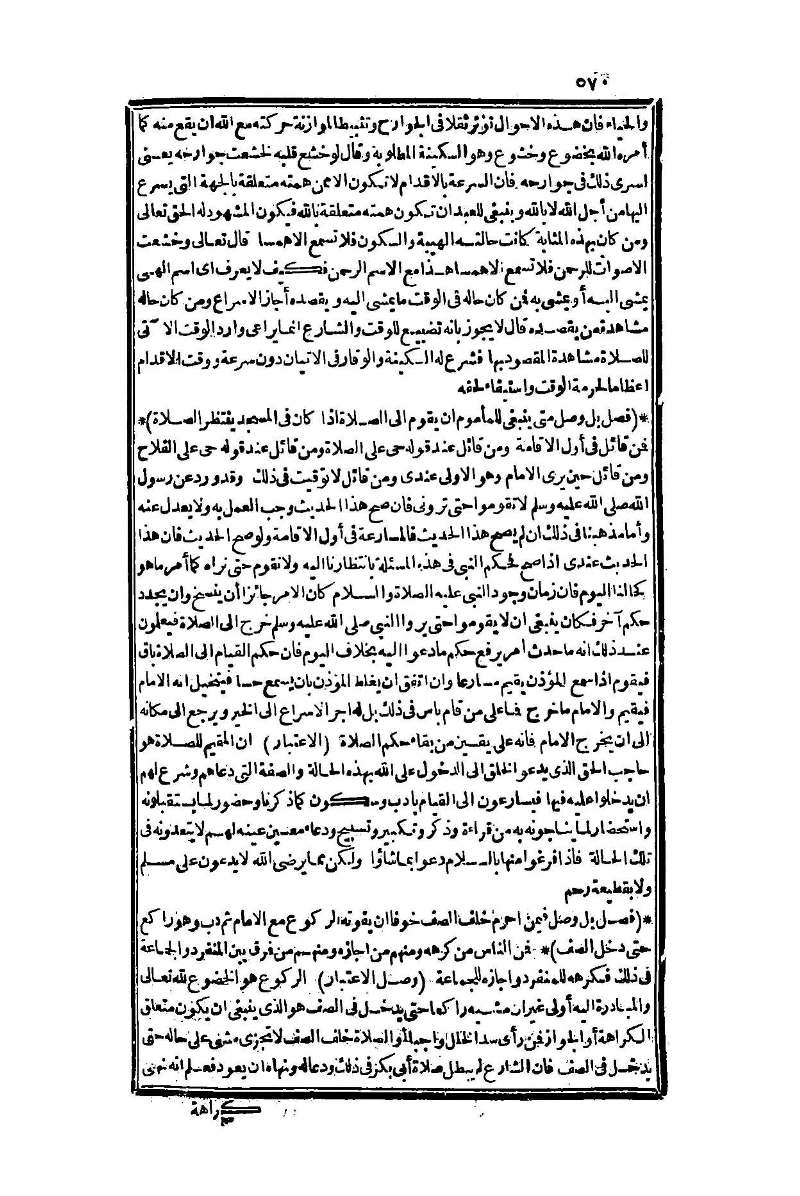 ٥٧٠
والحياء فان هذه الاحوال تؤثر ثقلا فى الجوارح وتثبيطا لموازنة حركته مع الله ان يقع منه كما
أمره الله بخضوع وخشوع وهو السكينة المطلوبة وقال لو خشع قلبه لخشعت جوارحه يعنى
اسرى ذلك فى جوارحه فان السرعة بالاقدام لا تكون الا ممن همته متعلقة بالجهة التى يسرع
اليها من أجل الله لا بالله وينبغى للعبد ان تكون همته متعلقة بالله فيكون المشهود له الحق تعالى
ومن كان بهذه المثابة كانت حالته الهيبة والسكون فلا تسمع الا همسا قال تعالى وخشعت
الاصوات للرحمن فلا تسمع الا همسا هذا مع الاسم الرحمن فكيف لا يعرف اى اسم الهى
يمشى اليه أو يمشى به فمن كان حاله فى الوقت ما يمشى اليه ويقصده أجاز الاسراع ومن كان حاله
مشاهدة من يقصده قال لا يجوز بانه تضييع للوقت والشارع انما يراعى وارد الوقت الا آتى
للصلاة مشاهدة المقصود بها فشرع له السكينة والوقار فى الاتيان دون سرعة ووقت الاقدام
اعظاما لحرمة الوقت واستيفاء لحقه
*(فصل بل وصل متى ينبغى للمأموم ان يقوم الى الصلاة اذا كان فى المسجد ينتظر الصلاة)*
فمن قائل فى أول الاقامة ومن قائل عند قوله حى على الصلاة ومن قائل عند قوله حى على الفلاح
ومن قائل حين يرى الامام وهو الاولى عندى ومن قائل لا توقيت فى ذلك وقد ورد عن رسول
الله صلى الله عليه وسلم لا تقوموا حتى ترونى فان صح هذا الحديث وجب العمل به ولا يعدل عنه
وأما مذهبنا فى ذلك ان لم يصح هذا الحديث فالمسارعة فى أول الاقامة ولو صح الحديث فان هذا
الحديث عندى اذا صح فحكم النبى فى هذه المسئلة بانتظارنا اليه ولا نقوم حتى نراه كما أمر ما هو
كحالنا اليوم فان زمان وجود النبى عليه الصلاة والسلام كان الامر جائزا أن ينسخ وان يجدد
حكم آخر فكان ينبغى ان لا يقوموا حتى يروا النبى صلى الله عليه وسلم خرج الى الصلاة فيعلمون
عند ذلك انه ما حدث أمر يرفع حكم ما دعوا اليه بخلاف اليوم فان حكم القيام الى الصلاة باق
فيقوم اذا سمع المؤذن يقيم مسارعا وان اتفق ان يغلط المؤذن بان يسمع حسا فيتخيل انه الامام
فيقيم والامام ما خرج فما على من قام بأس فى ذلك بل له اجر الاسراع الى الخير ويرجع الى مكانه
الى ان يخرج الامام فانه على يقين من بقاء حكم الصلاة (الاعتبار) ان المقيم للصلاة هو
حاجب الحق الذى يدعو الخلق الى الدخول على الله بهذه الحالة والصفة التى دعاهم وشرع لهم
ان يدخلوا عليه فيها فيسارعون الى القيام بادب وسكون كما ذكرنا وحضور لما يستقبلونه
واستحضار لما يناجونه به من قراءة وذكر وتكبير وتسبيح ودعاء معين عينه لهم لا يتعدونه فى
تلك الحالة فاذا فرغوا منها بالسلام دعوا بما شاؤا ولكن مما يرضى الله لا يدعون على مسلم
ولا بقطيعة رحم
*(فصل بل وصل فيمن احرم خلف الصف خوفا ان يفوته الركوع مع الامام ثم دب وهو راكع
حتى دخل الصف)* فمن الناس من كرهه ومنهم من اجازه ومنهم من فرق بين المنفرد والجماعة
فى ذلك فكرهه للمنفرد واجازه للجماعة (وصل الاعتبار) الركوع هو الخضوع لله تعالى
والمبادرة اليه أولى غير ان مشيه راكعا حتى يدخل فى الصف هو الذى ينبغى ان يكون متعلق
الكراهة أو الجواز فمن رأى سد الخلل واجبا والصلاة خلف الصف لا تجزى مشى على حاله حتى
يدخل فى الصف فان الشارع لم يبطل صلاة أبى بكر فى ذلك ودعا له ونهاه ان يعود فعلم انه نهى
كراهة